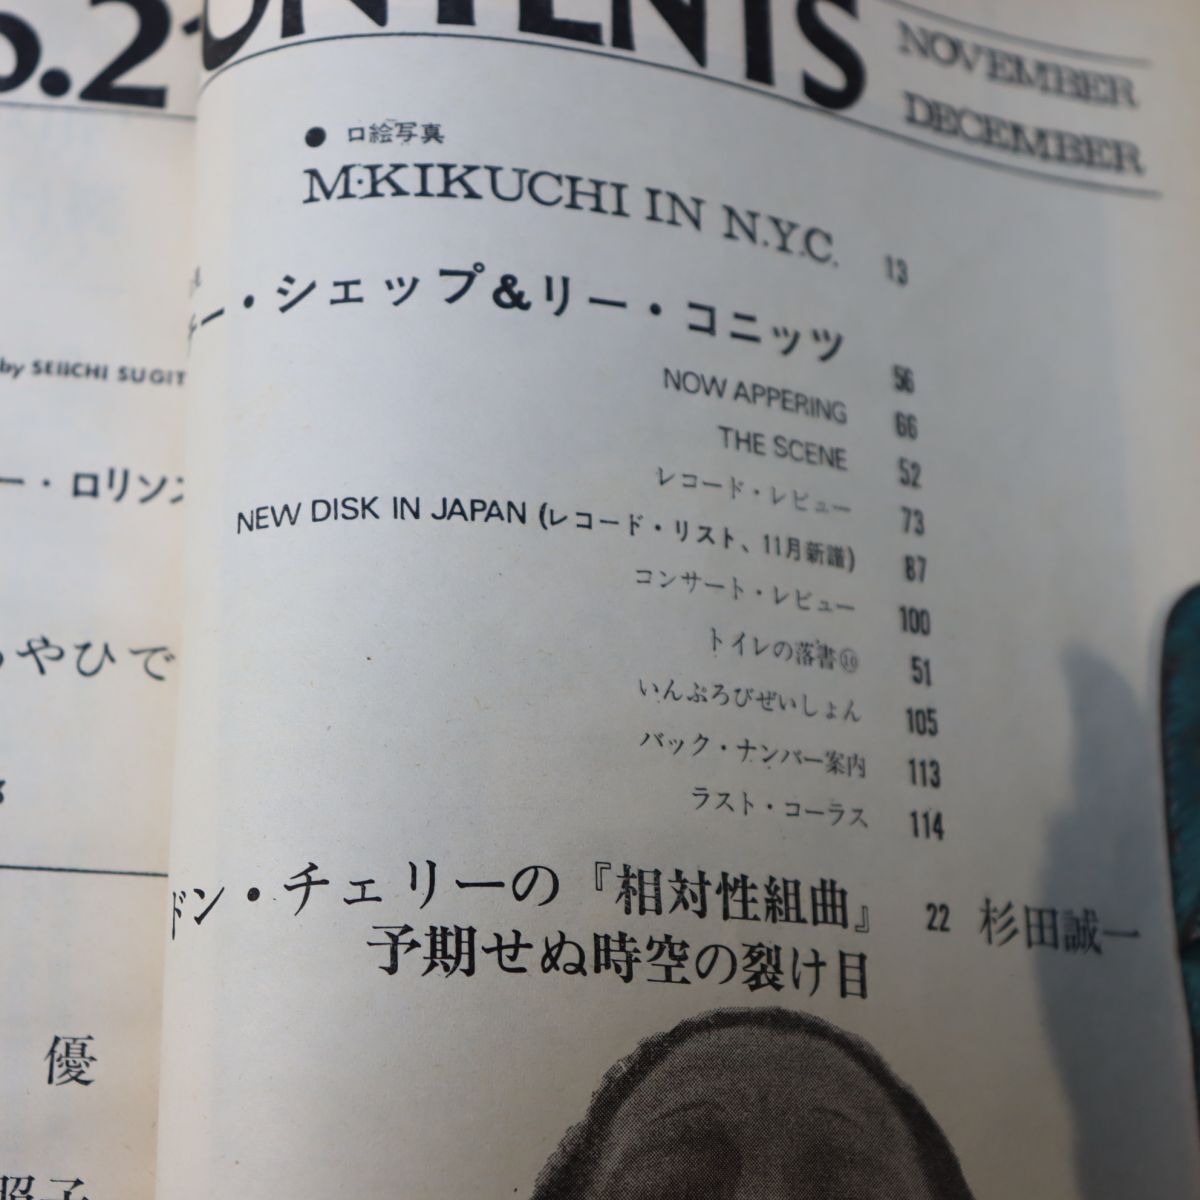 CONTENTS
NOVEMBER
DECEMBER
● 口絵写真
M·KIKUCHI IN N.Y.C. 13
チー・シェップ&リー・コニッツ 56
NOW APPERING 66
THE SCENE 52
レコード・レビュー 73
NEW DISK IN JAPAN (レコード・リスト、11月新譜) 87
コンサート・レビュー 100
トイレの落書⑩ 51
いんぷろびぜいしょん 105
バック・ナンバー案内 113
ラスト・コーラス 114
ドン・チェリーの『相対性組曲』 22 杉田誠一
予期せぬ時空の裂け目
by SEIICHI SUGIT
ー・ロリンス
やひで
優
照子